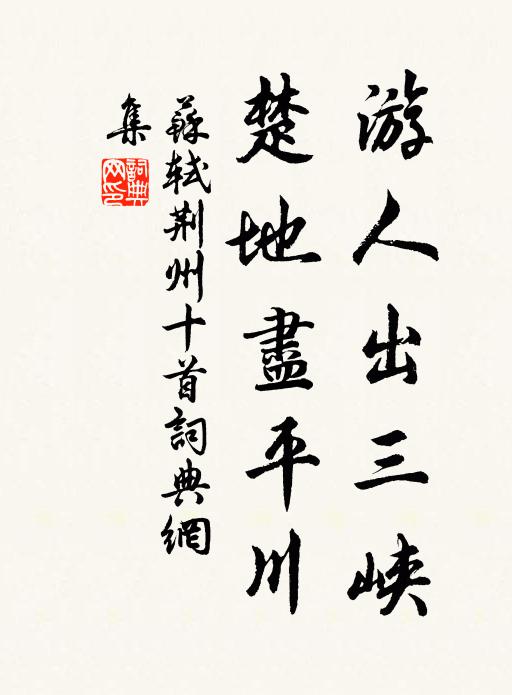 游人出三峽
楚地盡平川
蘇軾荆州十首詞典網
集
詞典网印